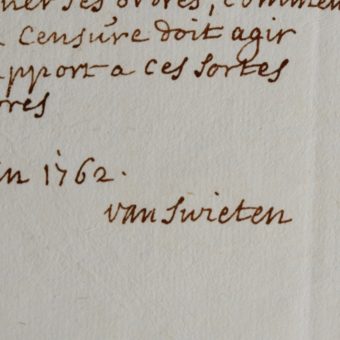 ses ordres, comment
Censure doit agir
apport a ces sortes
res
in 1762.
van Swieten